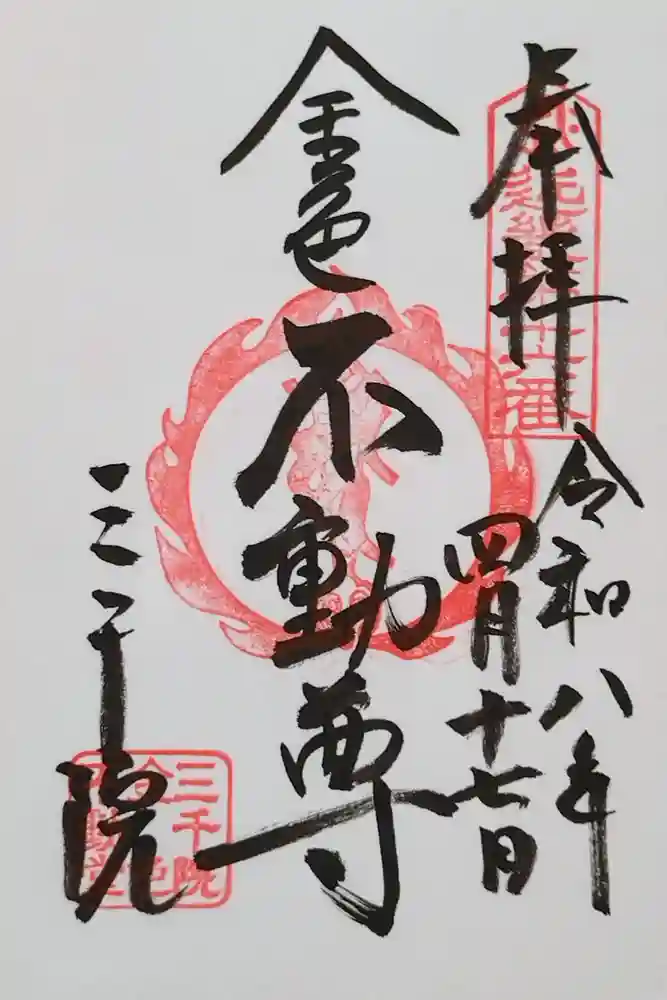 奉拝
令和八年
四月十七日
金色
不動尊
三千院
三千院
金色
不動堂